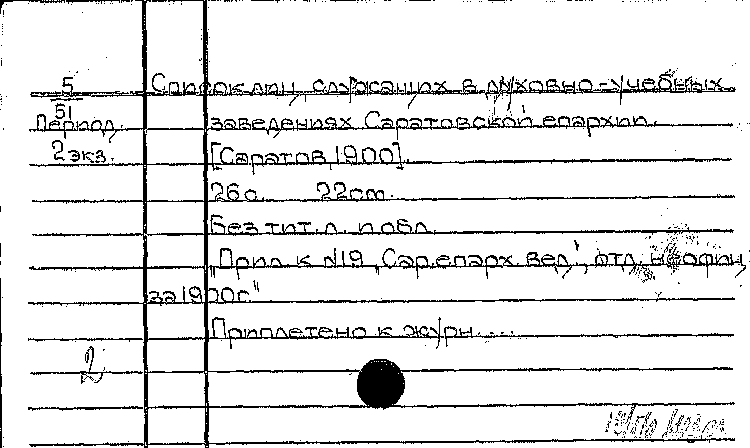 5 Список лиц, служащих в духовно-учебных
51
Период. заведениях Саратовской епархии.
2 экз. [Саратов, 1900].
26с. 22cm.
Без тит. л. и обл.
„Прил. к №19 „Сар. епарх. вед.", отд. неофиц.
за 1900г."
Приплетено к журн. ...
2